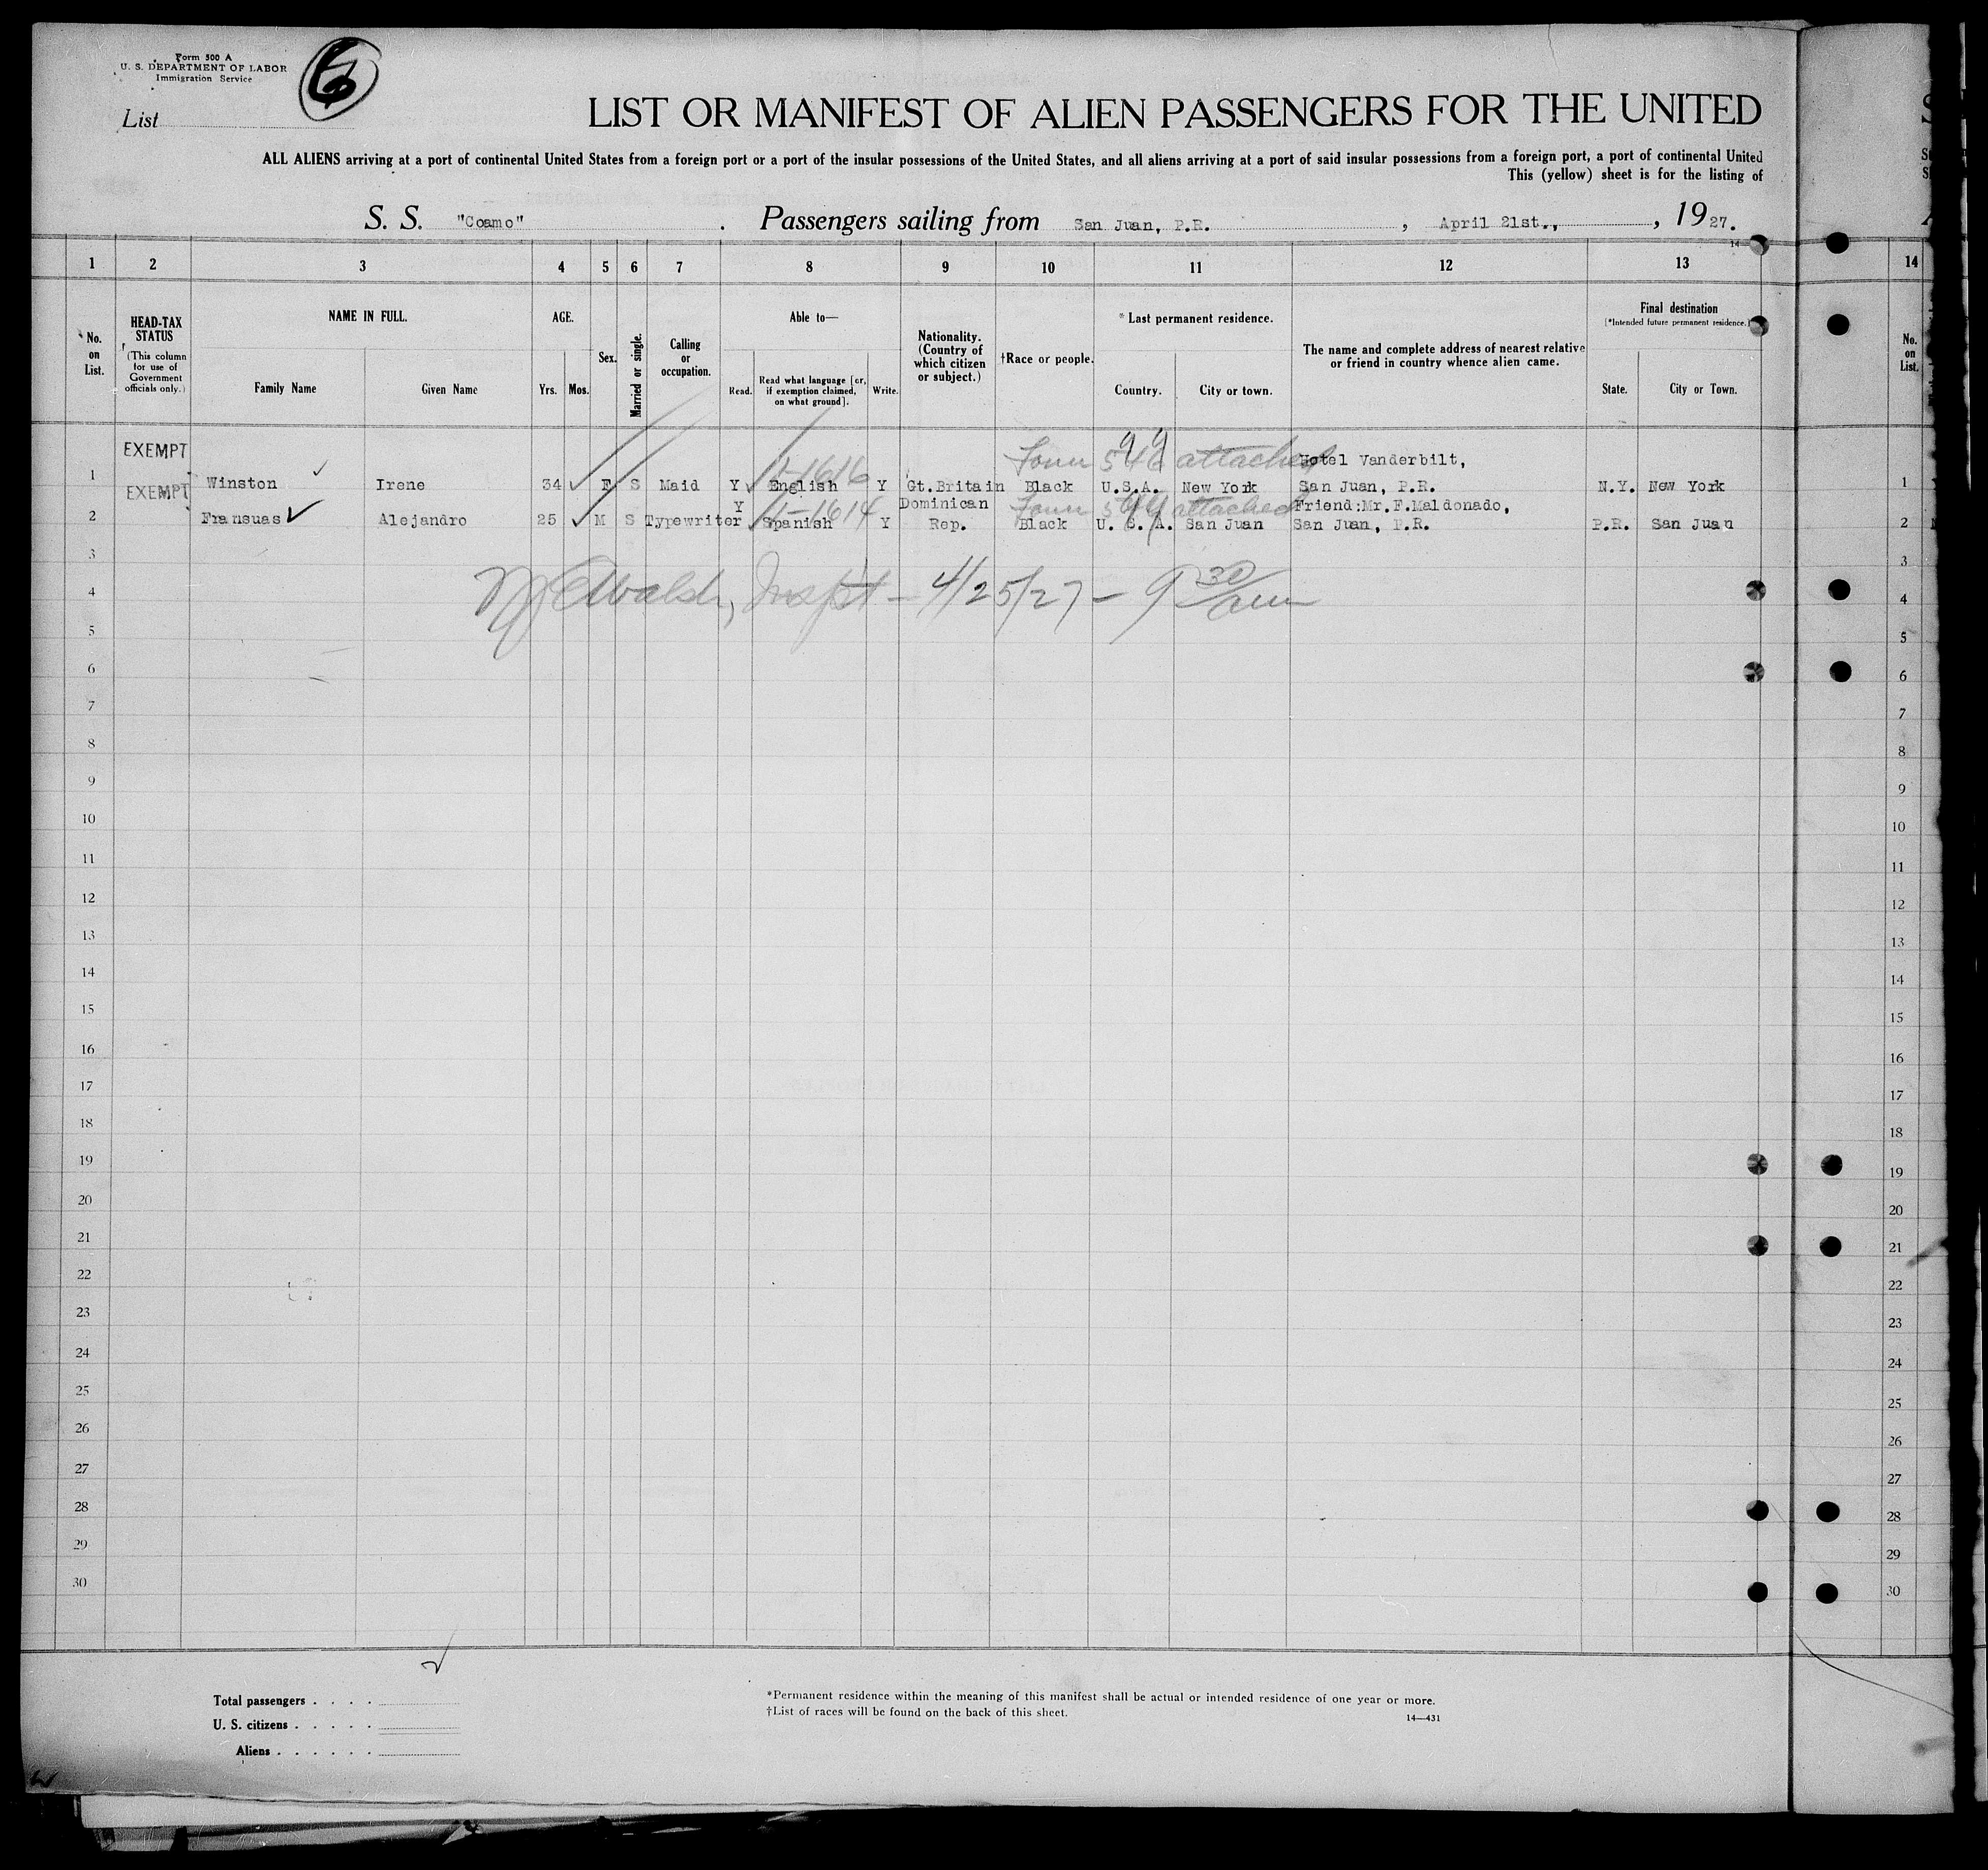 Form 500 A
U. S. DEPARTMENT OF LABOR
Immigration Service
6
List
LIST OR MANIFEST OF ALIEN PASSENGERS FOR THE UNITED
ALL ALIENS arriving at a port of continental United States from a foreign port or a port of the insular possessions of the United States, and all aliens arriving at a port of said insular possessions from a foreign port, a port of continental United
This (yellow) sheet is for the listing of
S. S. "Coamo" . Passengers sailing from San Juan, P.R. , April 21st., , 1927.
1 2 3 4 5 6 7 8 9 10 11 12 13 14
No. on List.
HEAD-TAX STATUS
(This column for use of Government officials only.)
NAME IN FULL.
Family Name Given Name
AGE.
Yrs. Mos.
Sex.
Married or single.
Calling or occupation.
Able to—
Read. Read what language [or, if exemption claimed, on what ground]. Write.
Nationality. (Country of which citizen or subject.)
†Race or people.
* Last permanent residence.
Country. City or town.
The name and complete address of nearest relative or friend in country whence alien came.
Final destination
[*Intended future permanent residence.]
State. City or Town.
No. on List.
EXEMPT 1-1616 Form 546 attached Hotel Vanderbilt,
1 Winston Irene 34 F S Maid Y English Y Gt.Britain Black U.S.A. New York San Juan, P.R. N.Y. New York 1
EXEMPT Y 1-1614 Dominican Form attached Friend:Mr.F.Maldonado,
2 Fransuas Alejandro 25 M S Typewriter Spanish Y Rep. Black U. S. A. San Juan San Juan, P.R. P.R. San Juan 2
3 3
Walsh, Inspt – 4/25/27 – 9 30/am
4 4
5 5
6 6
7 7
8 8
9 9
10 10
11 11
12 12
13 13
14 14
15 15
16 16
17 17
18 18
19 19
20 20
21 21
22 22
23 23
24 24
25 25
26 26
27 27
28 28
29 29
30 30
Total passengers . . . .
U. S. citizens . . . . .
Aliens . . . . . .
*Permanent residence within the meaning of this manifest shall be actual or intended residence of one year or more.
†List of races will be found on the back of this sheet.
14—431